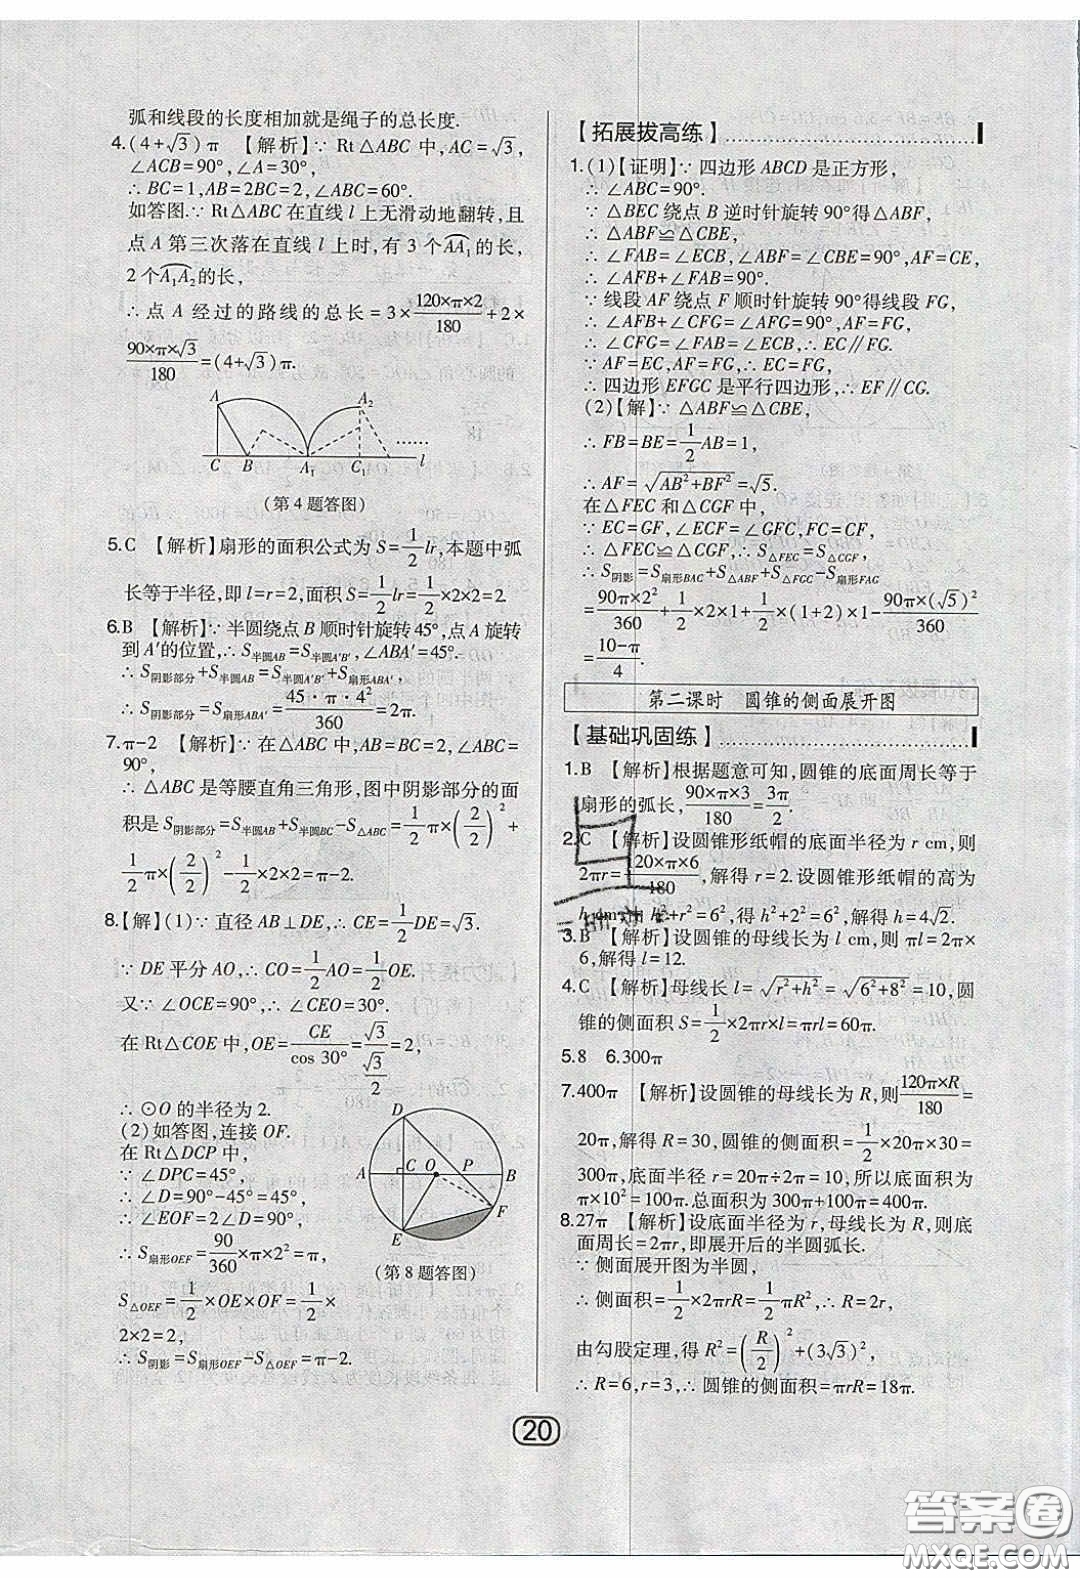 弧和线段的长度相加就是绳子的总长度.
4.(4+√3)π 【解析】∵ Rt△ABC 中,AC=√3,
∠ACB=90°,∠A=30°,
∴ BC=1,AB=2BC=2,∠ABC=60°.
如答图.∵ Rt△ABC 在直线 l 上无滑动地翻转,且
点 A 第三次落在直线 l 上时,有 3 个 AA₁ 的长,
2 个 A₁A₂ 的长,
∴ 点 A 经过的路线的总长=3×120×π×2/180+2×
90×π×√3/180=(4+√3)π.
A A₂
C B A₁ C₁ l ……
(第 4 题答图)
5.C 【解析】扇形的面积公式为 S=1/2lr,本题中弧
长等于半径,即 l=r=2,面积 S=1/2lr=1/2×2×2=2.
6.B 【解析】∵ 半圆绕点 B 顺时针旋转 45°,点 A 旋转
到 A′的位置,∴ S半圆AB=S半圆A′B′,∠ABA′=45°.
∴ S阴影部分+S半圆AB=S半圆A′B′+S扇形ABA′,
∴ S阴影部分=S扇形ABA′=45·π·4²/360=2π.
7.π-2 【解析】∵ 在△ABC 中,AB=AC,∠ABC=
90°,
∴ △ABC 是等腰直角三角形,图中阴影部分的面
积是 S阴影部分=S半圆AB+S半圆BC-S△ABC=1/2π×(2/2)²+
1/2π×(2/2)²-1/2×2×2=π-2.
8.【解】(1)∵ 直径 AB⊥DE,∴ CE=1/2DE=√3.
∵ DE 平分 AO,∴ CO=1/2AO=1/2OE.
又∵ ∠OCE=90°,∴ ∠CEO=30°.
在 Rt△COE 中,OE=CE/cos 30°=√3/(√3/2)=2,
∴ ⊙O 的半径为 2.
(2)如答图,连接 OF.
在 Rt△DCP 中,
∵ ∠DPC=45°,
∴ ∠D=90°-45°=45°,
∴ ∠EOF=2∠D=90°,
∴ S扇形OEF=90/360×π×2²=π,
S△OEF=1/2×OE×OF=1/2×
2×2=2,
∴ S阴影=S扇形OEF-S△OEF=π-2.
D
A C O P B
F
E
(第 8 题答图)
【拓展拔高练】
1.(1)【证明】∵ 四边形 ABCD 是正方形,
∴ ∠ABC=90°.
∵ △BEC 绕点 B 逆时针旋转 90°得△ABF,
∴ △ABF≌△CBE,
∴ ∠FAB=∠ECB,∠ABF=∠CBE=90°,AF=CE,
∴ ∠AFB+∠FAB=90°.
∵ 线段 AF 绕点 F 顺时针旋转 90°得线段 FG,
∴ ∠AFB+∠CFG=∠AFG=90°,
∴ ∠CFG=∠FAB=∠ECB,∴ EC∥FG.
∵ AF=EC,AF=FG,∴ EC=FG,
∴ 四边形 EFGC 是平行四边形,∴ EF∥CG.
(2)【解】∵ △ABF≌△CBE,
∴ FB=BE=1/2AB=1,
∴ AF=√(AB²+BF²)=√5.
在△FEC 和△CGF 中,
∵ EC=GF,∠ECF=∠GFC,FC=CF,
∴ △FEC≌△CGF,∴ S△FEC=S△CGF,
∴ S阴影=S扇形BAC+S△ABF+S△FGC-S扇形FAG
=90π×2²/360+1/2×2×1+1/2×(1+2)×1-90π×(√5)²/360
=(10-π)/4.
第二课时 圆锥的侧面展开图
【基础巩固练】
1.B 【解析】根据题意可知,圆锥的底面周长等于
扇形的弧长,90×π×3/180=3π/2.
2.C 【解析】设圆锥形纸帽的底面半径为 r cm,则
2πr=120×π×6/180,解得 r=2.设圆锥形纸帽的高为
h cm,由 h²+r²=6²,得 h²+2²=6²,解得 h=4√2.
3.B 【解析】设圆锥的母线长为 l cm,则 πl=2π×
6,解得 l=12.
4.C 【解析】母线长 l=√(r²+h²)=√(6²+8²)=10,圆
锥的侧面积 S=1/2×2πr×l=πrl=60π.
5.8 6.300π
7.400π 【解析】设圆锥的母线长为 R,则120π×R/180=
20π,解得 R=30,圆锥的侧面积=1/2×20π×30=
300π,底面半径 r=20π÷2π=10,所以底面积为
π×10²=100π.总面积为 300π+100π=400π.
8.27π 【解析】设底面半径为 r,母线长为 R,则底
面周长=2πr,即展开后的半圆弧长.
∵ 侧面展开图为半圆,
∴ 侧面积=1/2×2πrR=1/2πR²,∴ R=2r,
由勾股定理,得 R²=(R/2)²+(3√3)²,
∴ R=6,r=3,∴ 圆锥的侧面积=πrR=18π.
20
答案圈
MXQE.COM